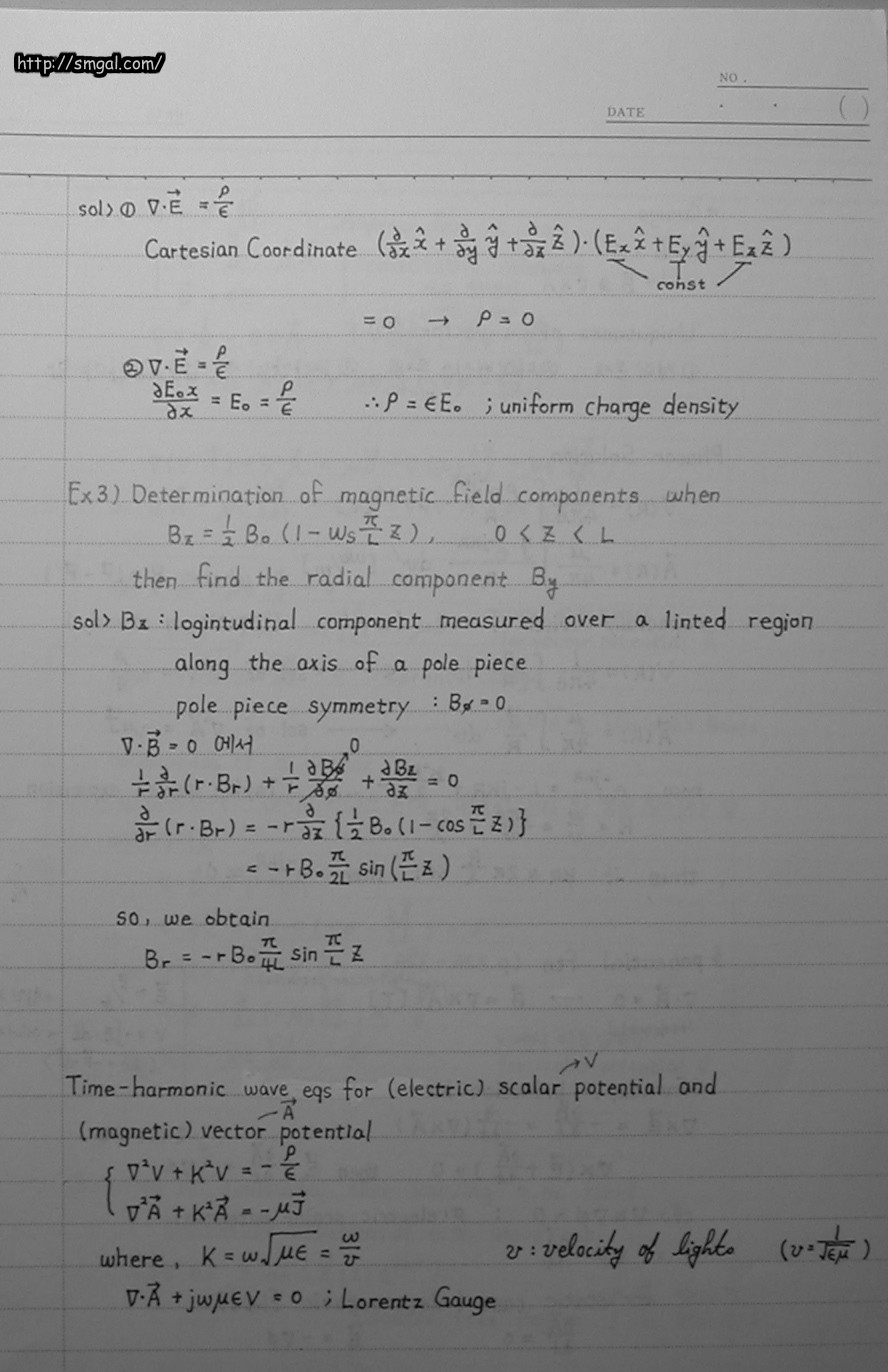 http://smgal.com/
NO .
DATE . . ( )
sol> ① ∇·E⃗ = ρ/ϵ
Cartesian Coordinate (∂/∂x x̂ + ∂/∂y ŷ + ∂/∂z ẑ)·(Exx̂ + Eyŷ + Ezẑ)
const
= 0 → ρ = 0
② ∇·E⃗ = ρ/ϵ
∂E₀x/∂x = E₀ = ρ/ϵ ∴ρ = ϵE₀ ; uniform charge density
Ex3) Determination of magnetic field components when
Bz = 1/2 B₀ (1 - ws π/L Z), 0 < Z < L
then find the radial component By
sol> Bz : logintudinal component measured over a linted region
along the axis of a pole piece
pole piece symmetry : Bø = 0
∇·B⃗ = 0 에서
1/r ∂/∂r (r·Br) + 1/r ∂Bø/∂ø + ∂Bz/∂z = 0
0
∂/∂r (r·Br) = -r ∂/∂z {1/2 B₀ (1-cos π/L Z)}
= -rB₀ π/2L sin(π/L Z)
so, we obtain
Br = -rB₀ π/4L sin π/L Z
Time-harmonic wave eqs for (electric) scalar potential and
V
A⃗
(magnetic) vector potential
∇²V + K²V = -ρ/ϵ
∇²A⃗ + K²A⃗ = -μJ⃗
where, K = ω√μϵ = ω/v v : velocity of lights (v = 1/√ϵμ)
∇·A⃗ + jωμϵV = 0 ; Lorentz Gauge